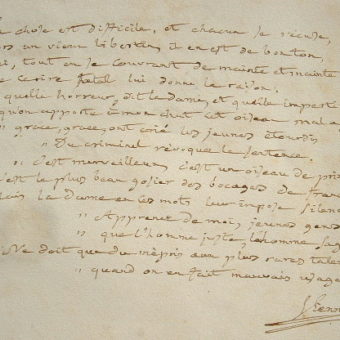 chose est difficile, et chacun se récuse,
un vieux libertin, il en est de bon ton,
tout en se couvrant de mainte et mainte
cerise fatal lui donne la raison.
quelle horreur, dit la dame, et quel imperti
qu'on apporte à mon chat cet oiseau mal a
" grace, grace, ont crié les jeunes étourdis
" Du criminel révoque la sentence.
" c'est merveilleux, c'est un oiseau de prix
c'est le plus beau gosier des bocages de fran
la Dame en ces mots leur impose silen
" Apprenez de moi, jeunes gens
" que l'homme juste, l'homme sag
" Ne doit que du mépris aux plus rares tale
" quand on en fait mauvais usage